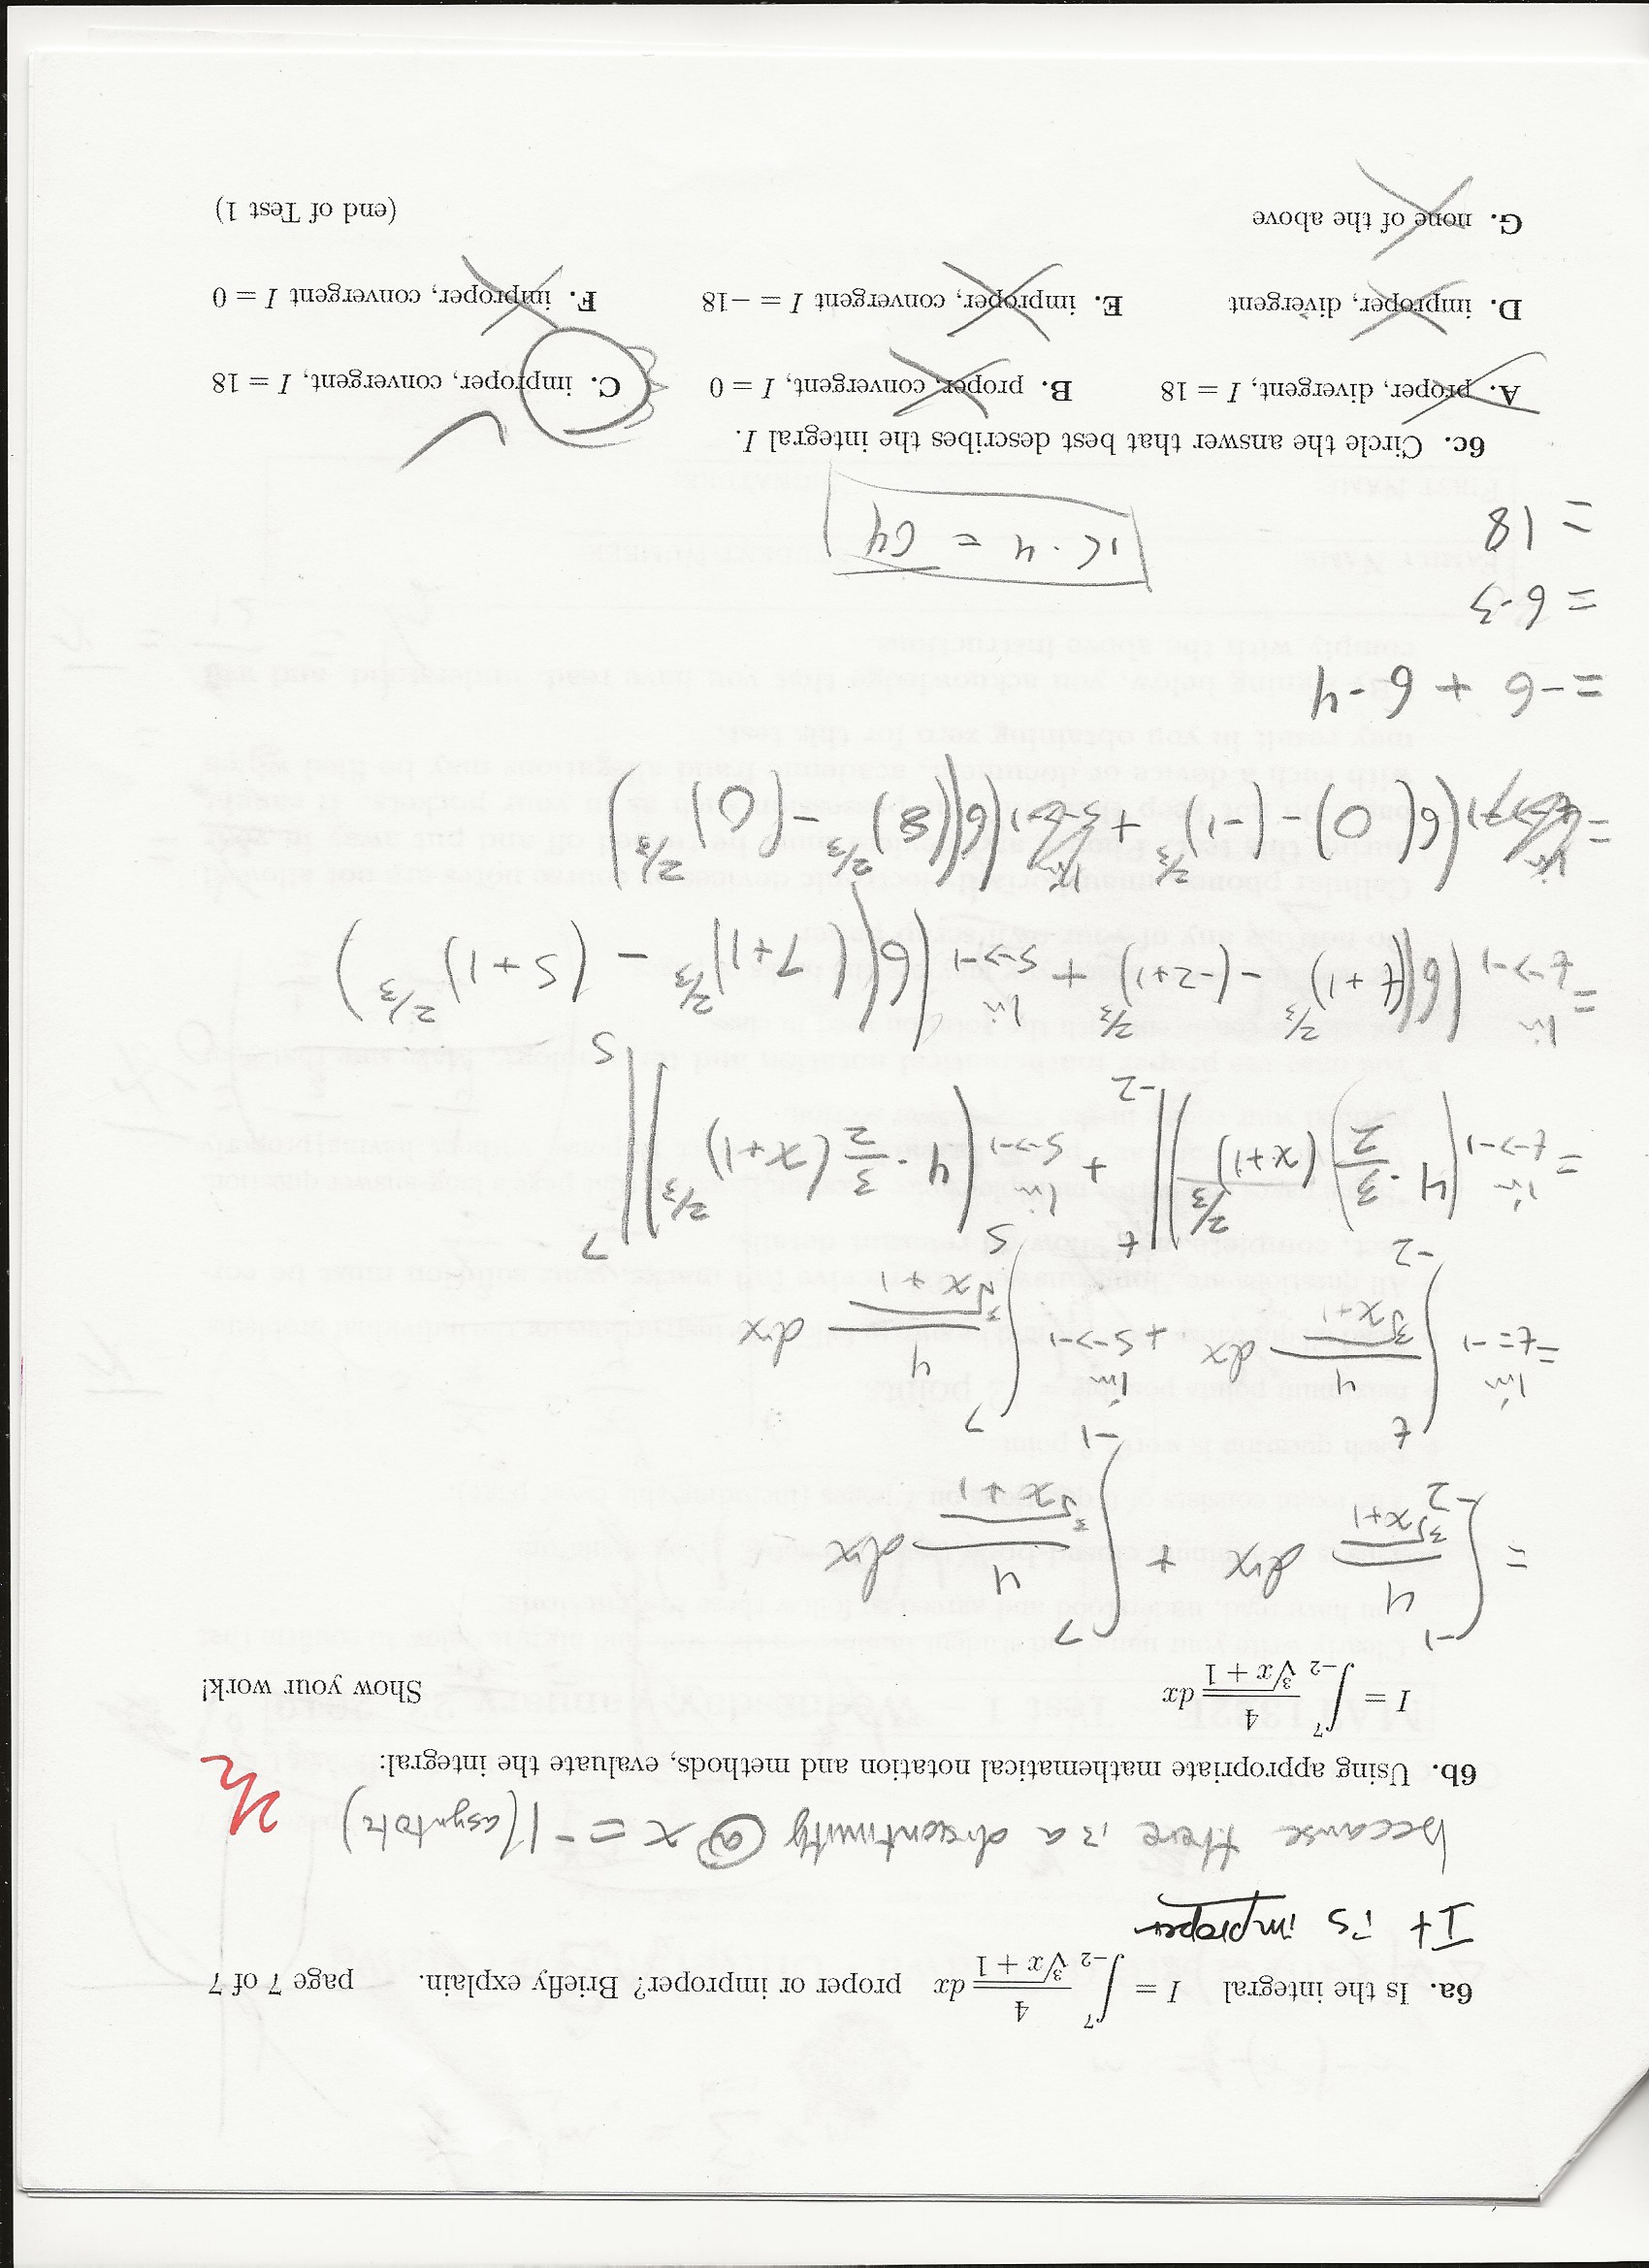 6a. Is the integral I = ∫_{-2}^{7} 4/∛(x+1) dx proper or improper? Briefly explain. page 7 of 7
It is improper
because there is a discontinuity @ x = -1 (asymtote)
6b. Using appropriate mathematical notation and methods, evaluate the integral:
I = ∫_{-2}^{7} 4/∛(x+1) dx Show your work!
= ∫_{-2}^{-1} 4/∛(x+1) dx + ∫_{-1}^{7} 4/∛(x+1) dx
= lim t=-1 ∫_{-2}^{t} 4/∛(x+1) dx + lim s->-1 ∫_{s}^{7} 4/∛(x+1) dx
= lim t->-1 (4·3/2)(x+1)^{2/3})|_{-2}^{t} + lim s->-1 (4·3/2(x+1)^{2/3})|_{s}^{7}
= lim t->-1 (6((t+1)^{2/3} - (-2+1)^{2/3}) + lim s->-1 (6((7+1)^{2/3} - (s+1)^{2/3})
= (6(0) - (-1)^{2/3}) + (6((8)^{2/3} - (0)^{2/3})
= -6 + 6·4
= 6·3
= 18
16·4 = 64
6c. Circle the answer that best describes the integral I.
A. proper, divergent, I = 18 B. proper, convergent, I = 0 C. improper, convergent, I = 18
D. improper, divergent E. improper, convergent I = -18 F. improper, convergent I = 0
G. none of the above (end of Test 1)